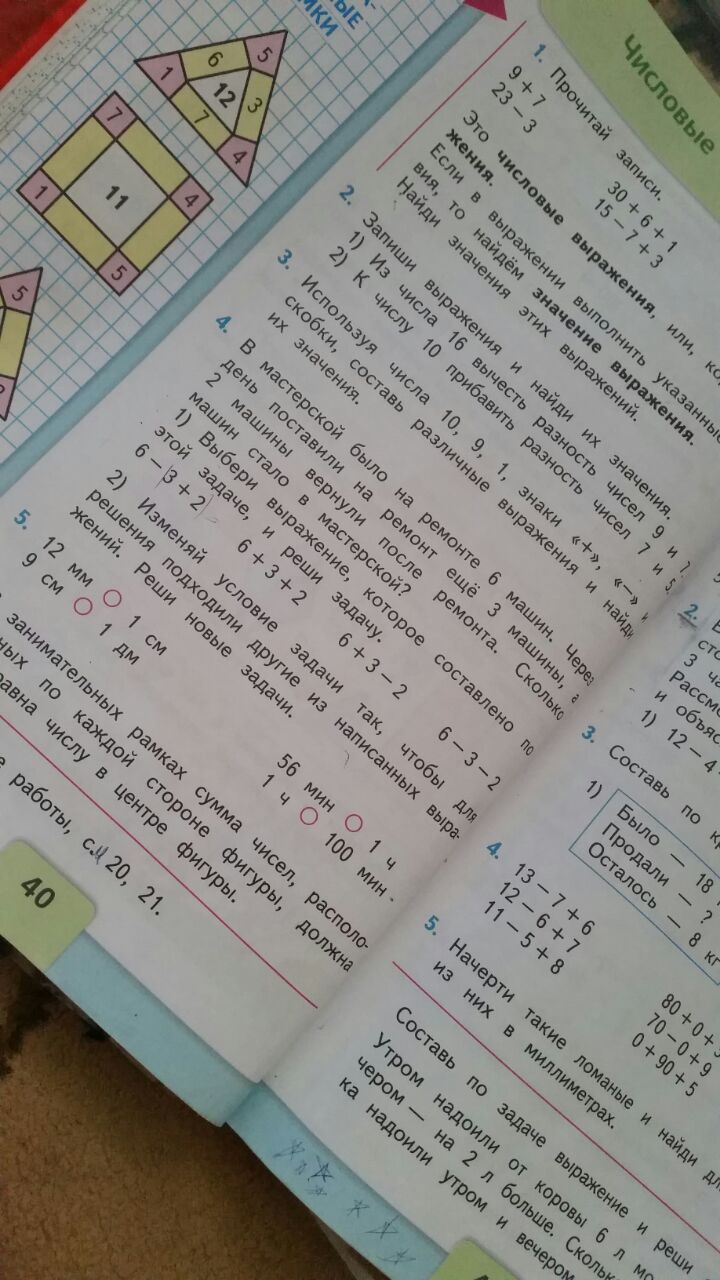 ЧИСЛОВЫЕ
1. Прочитай записи.
9 + 7
30 + 6 + 1
23 − 3
15 − 7 + 3
Это числовые выражения, или,
жения.
Если в выражении выполнить указанные
вия, то найдём значение выражения.
Найди значения этих выражений.
2. Запиши выражения и найди их значения.
1) Из числа 16 вычесть разность чисел 9 и 7.
2) К числу 10 прибавить разность чисел 7 и 5.
3. Используя числа 10, 9, 1, знаки «+», «−» и
скобки, составь различные выражения и найди
их значения.
4. В мастерской было на ремонте 6 машин. Через
день поставили на ремонт ещё 3 машины, а
2 машины вернули после ремонта. Сколько
машин стало в мастерской?
1) Выбери выражение, которое составлено по
этой задаче, и реши задачу.
6 − (3 + 2)
6 + 3 + 2
6 + 3 − 2
6 − 3 − 2
2) Изменяй условие задачи так, чтобы для
решения подходили другие из написанных выра-
жений. Реши новые задачи.
5.
12 мм ○ 1 см
56 мин ○ 1 ч
9 см ○ 1 дм
1 ч ○ 100 мин
занимательных рамках сумма чисел, располо-
ных по каждой стороне фигуры, должна
равна числу в центре фигуры.
работы, с. 20, 21.
40
НЫЕ
МКИ
6
5
1
12
3
7
4
7
1
11
4
5
5
2.
3 ча
и объяс
1) 12 − 4
3. Составь по
1) Было — 18
Продали — ?
Осталось — 8 кг
4.
13 − 7 + 6
12 − 6 + 7
11 − 5 + 8
80 + 0 +
70 − 0 + 9
0 + 90 + 5
5. Начерти такие ломаные и найди
из них в миллиметрах.
Составь по задаче выражение и реши
Утром надоили от коровы 6 л
чером — на 2 л больше.
ка надоили утром и вечером